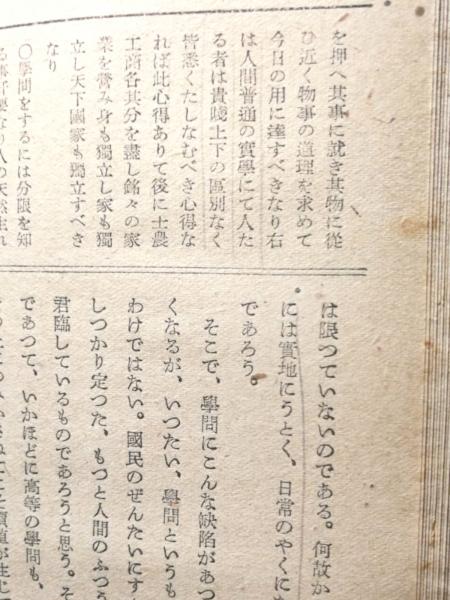 を押へ其事に就き其物に從
ひ近く物事の道理を求めて
今日の用に達すべきなり右
は人間普通の實學にて人た
る者は貴賤上下の區別なく
皆悉くたしなむべき心得な
れば此心得ありて後に士農
工商各其分を盡し銘々の家
業を營み身も獨立し家も獨
立し天下國家も獨立すべき
なり
○學問をするには分限を知
は限つていないのである。何故か
には實地にうとく、日常のやくに
であろう。
そこで、學問にこんな缺陷があつ
くなるが、いつたい、學問というも
わけではない。國民のぜんたいにす
しつかり定つた、もつと人間のふつう
君臨しているものであろうと思う。そ
であつて、いかほどに高等の學問も、